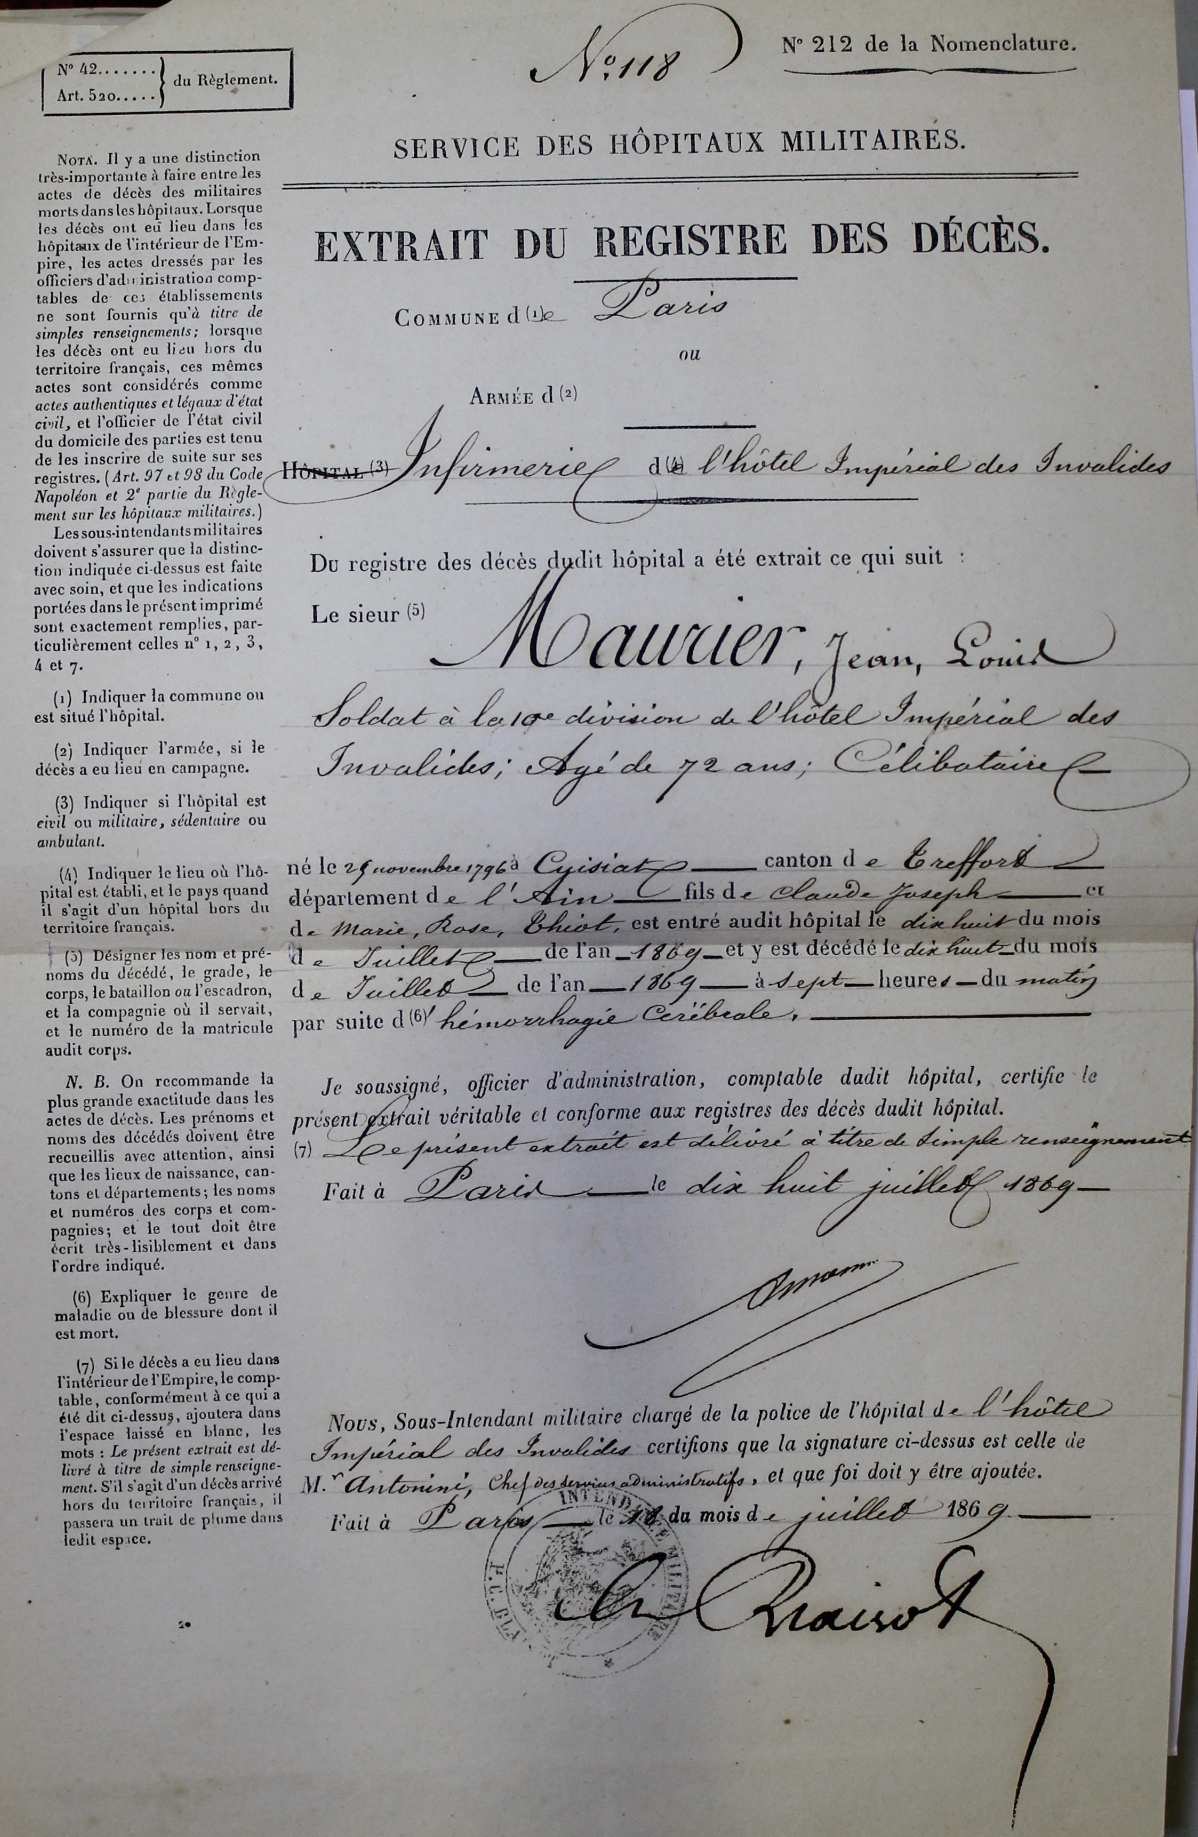 N° 42.......
Art. 520.....
du Règlement.
N° 118
N° 212 de la Nomenclature.
SERVICE DES HÔPITAUX MILITAIRES.
EXTRAIT DU REGISTRE DES DÉCÈS.
COMMUNE d (1) e Paris
ou
ARMÉE d (2)
HÔPITAL (3) Infirmerie d (4) e l'hôtel Impérial des Invalides
Du registre des décès dudit hôpital a été extrait ce qui suit :
Le sieur (5) Maurier, Jean, Louis
Soldat à la 10e division de l'hôtel Impérial des
Invalides; Agé de 72 ans; Célibataire
né le 25 novembre 1796 à Cuisiat canton de Treffort
département de l'Ain fils de Claude Joseph et
de Marie, Rose, Thiot, est entré audit hôpital le dix huit du mois
de Juillet de l'an 1869 et y est décédé le dix huit du mois
de Juillet de l'an 1869 à sept heures du matin
par suite d (6) hémorrhagie Cérébrale.
Je soussigné, officier d'administration, comptable dudit hôpital, certifie le
présent extrait véritable et conforme aux registres des décès dudit hôpital.
(7) Le présent extrait est délivré à titre de simple renseignement
Fait à Paris le dix huit juillet 1869
NOUS, Sous-Intendant militaire chargé de la police de l'hôpital de l'hôtel
Impérial des Invalides certifions que la signature ci-dessus est celle de
M.r Antonini, Chef des services administratifs, et que foi doit y être ajoutée.
Fait à Paris le 18 du mois de juillet 1869
INTENDANCE MILITAIRE
NOTA. Il y a une distinction
très-importante à faire entre les
actes de décès des militaires
morts dans les hôpitaux. Lorsque
les décès ont eu lieu dans les
hôpitaux de l'intérieur de l'Em-
pire, les actes dressés par les
officiers d'administration comp-
tables de ces établissements
ne sont fournis qu'à titre de
simples renseignements; lorsque
les décès ont eu lieu hors du
territoire français, ces mêmes
actes sont considérés comme
actes authentiques et légaux d'état
civil, et l'officier de l'état civil
du domicile des parties est tenu
de les inscrire de suite sur ses
registres. (Art. 97 et 98 du Code
Napoléon et 2e partie du Règle-
ment sur les hôpitaux militaires.)
Les sous-intendants militaires
doivent s'assurer que la distinc-
tion indiquée ci-dessus est faite
avec soin, et que les indications
portées dans le présent imprimé
sont exactement remplies, par-
ticulièrement celles n° 1, 2, 3,
4 et 7.
(1) Indiquer la commune ou
est situé l'hôpital.
(2) Indiquer l'armée, si le
décès a eu lieu en campagne.
(3) Indiquer si l'hôpital est
civil ou militaire, sédentaire ou
ambulant.
(4) Indiquer le lieu où l'hô-
pital est établi, et le pays quand
il s'agit d'un hôpital hors du
territoire français.
(5) Désigner les nom et pré-
noms du décédé, le grade, le
corps, le bataillon ou l'escadron,
et la compagnie où il servait,
et le numéro de la matricule
audit corps.
N. B. On recommande la
plus grande exactitude dans les
actes de décès. Les prénoms et
noms des décédés doivent être
recueillis avec attention, ainsi
que les lieux de naissance, can-
tons et départements; les noms
et numéros des corps et com-
pagnies; et le tout doit être
écrit très-lisiblement et dans
l'ordre indiqué.
(6) Expliquer le genre de
maladie ou de blessure dont il
est mort.
(7) Si le décès a eu lieu dans
l'intérieur de l'Empire, le comp-
table, conformément à ce qui a
été dit ci-dessus, ajoutera dans
l'espace laissé en blanc, les
mots : Le présent extrait est dé-
livré à titre de simple renseigne-
ment. S'il s'agit d'un décès arrivé
hors du territoire français, il
passera un trait de plume dans
ledit espace.